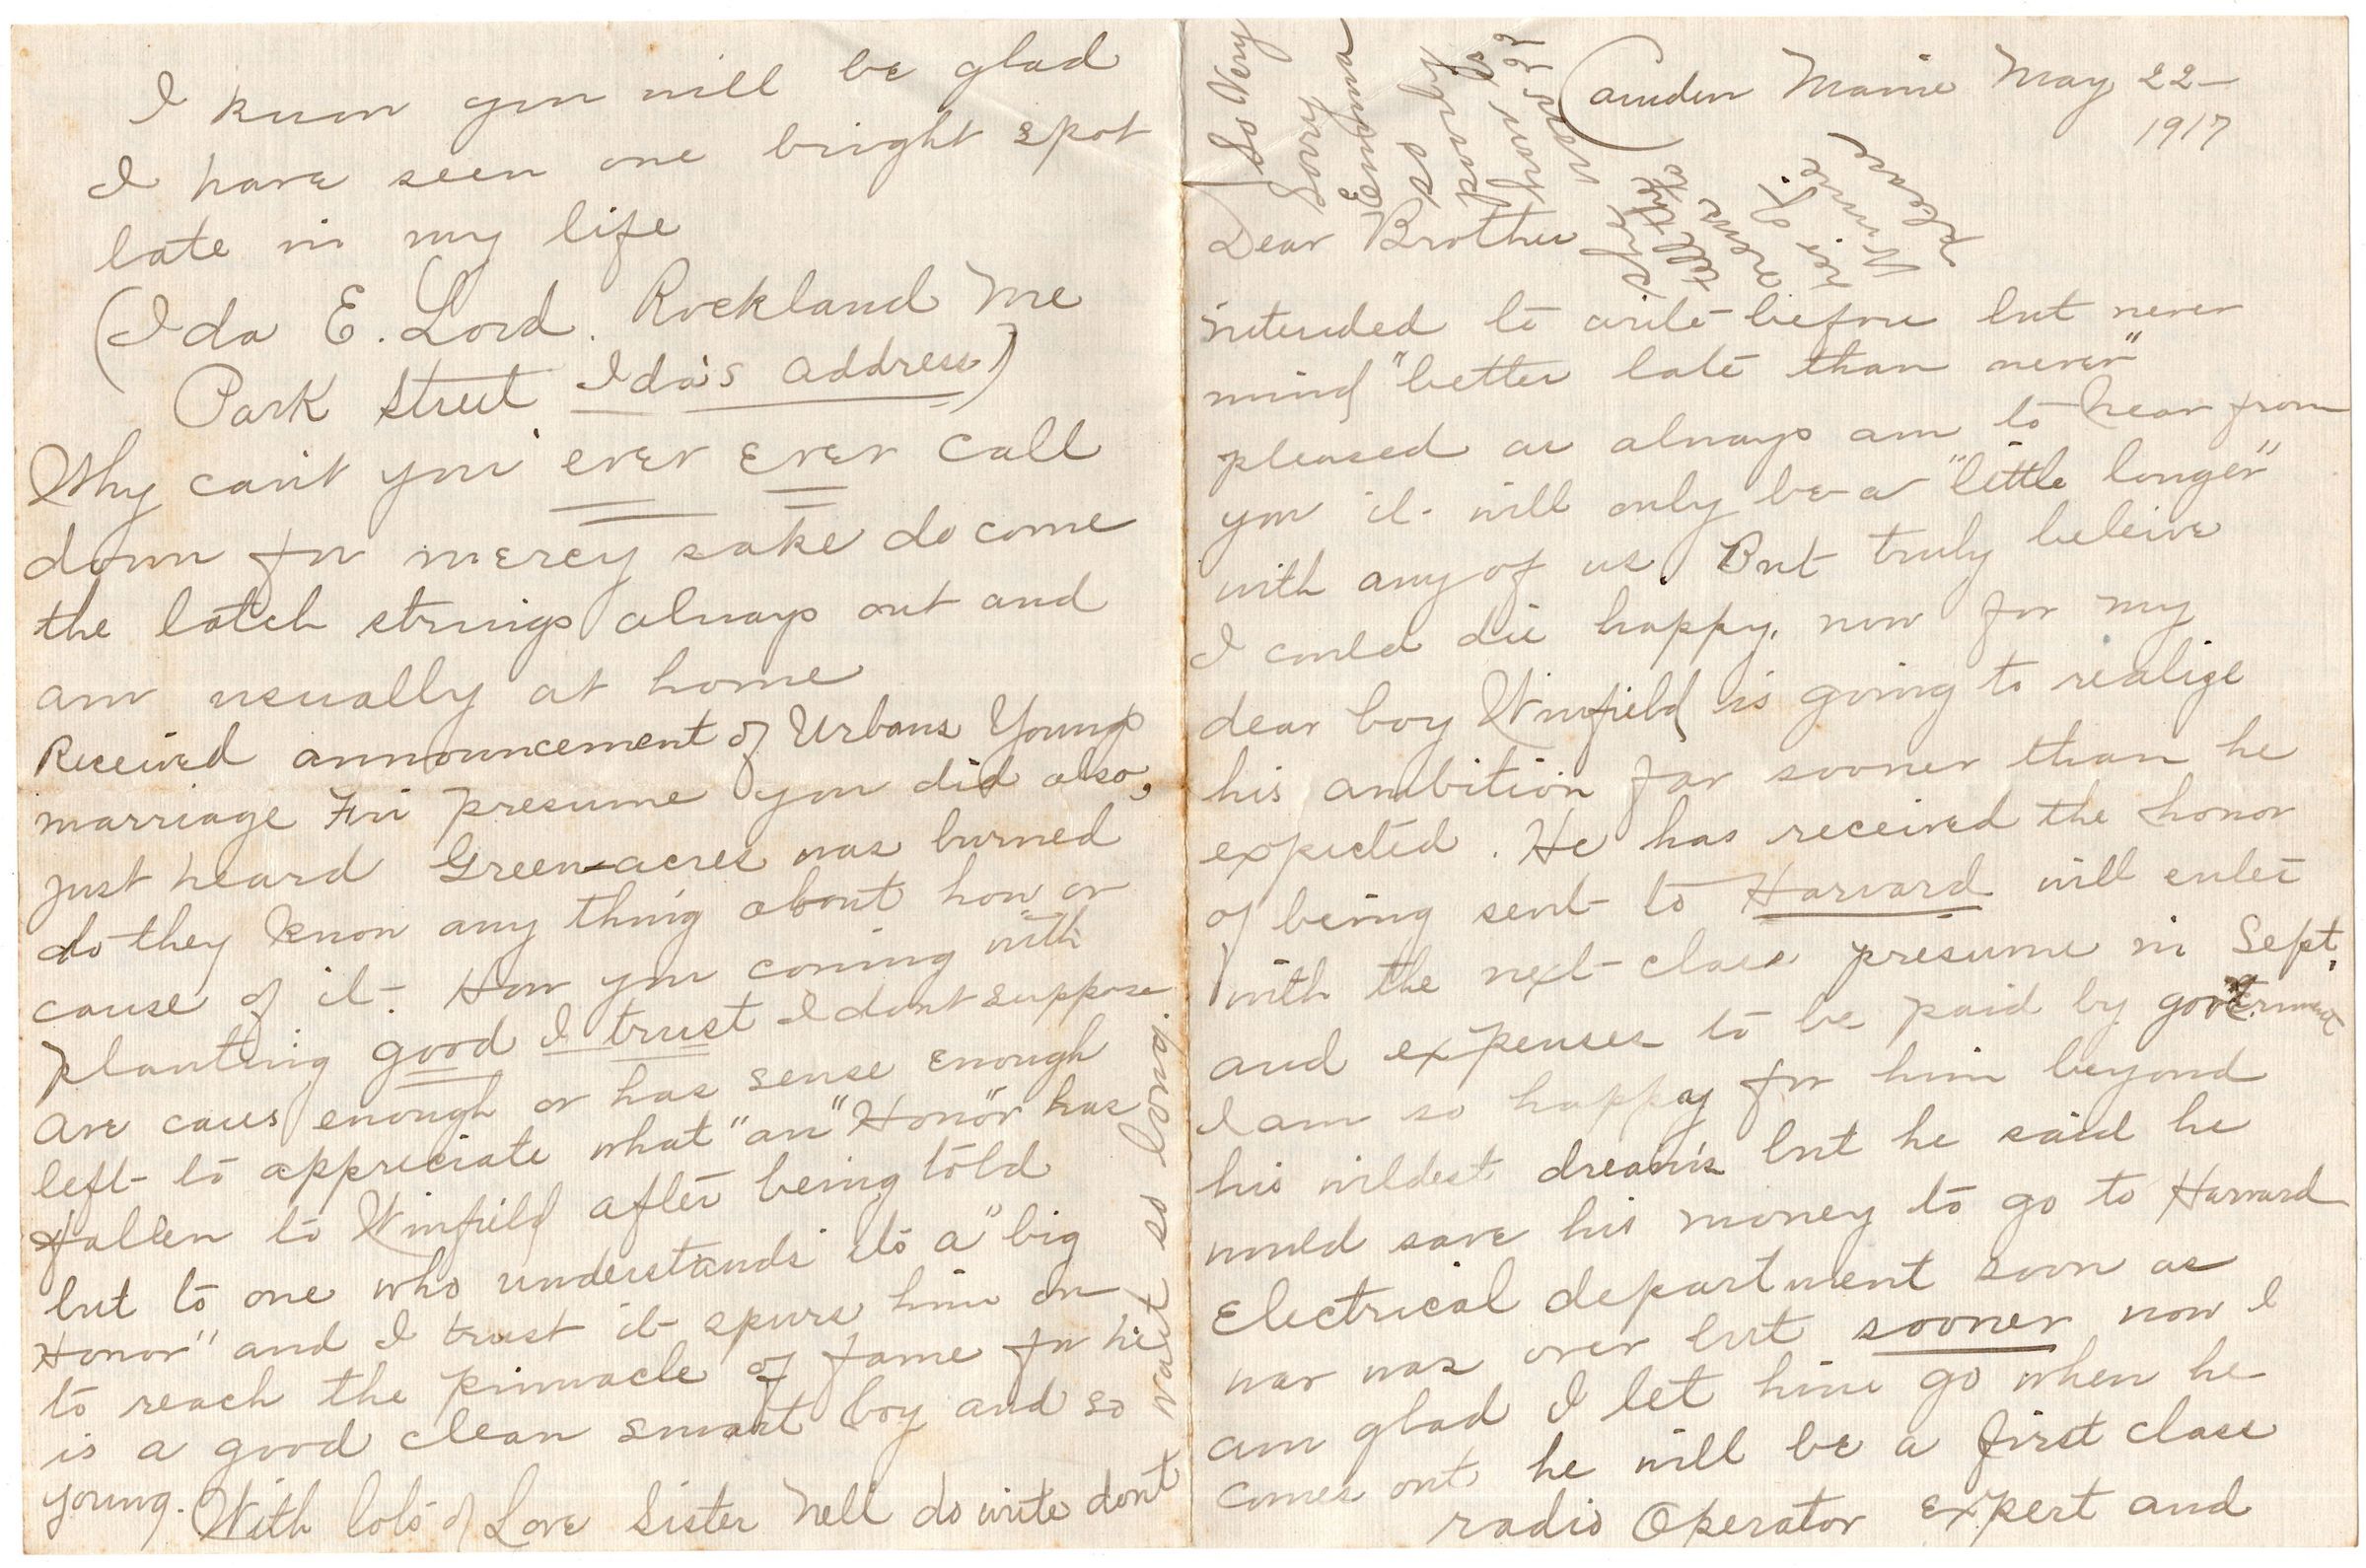 Camden Maine May 22-
1917
Dear Brother
intended to write before but never
mind "better late than never"
pleased as always am to hear from
you it will only be a "little longer"
with any of us. But truly beleive
I could die happy, now for my
dear boy Winfield is going to realize
his ambition far sooner than he
expected. He has received the honor
of being sent to Harvard will enter
with the next class presume in Sept.
and expenses to be paid by government
I am so happy for him beyond
his wildest dreams but he said he
would save his money to go to Harvard
Electrical department soon as
war was over but sooner now I
am glad I let him go when he
comes out he will be a first class
radio Operator expert and
I know you will be glad
I have seen one bright spot
late in my life
(Ida E. Lord. Rockland Me
Park Street Ida's address)
Why can't you ever ever call
down for mercy sake do come
the latch strings always out and
am usually at home
Received announcement of Urbans Youngs
marriage Fri presume you did also,
just heard Green-acres was burned
do they know any thing about how or
cause of it. How you coming with
planting good I trust I dont suppose
Are cares enough or has sense enough
left to appreciate what "an" "Honor" has
fallen to Winfield after being told
but to one who understands its a "big
Honor" and I trust it spurs him on
to reach the pinnacle of fame for he
is a good clean smart boy and so
young. With lots of Love Sister Nell do write dont
wait so long
So Very
Sorry
Emma
is
poorly
how is
she
tell
to
Winnie
please